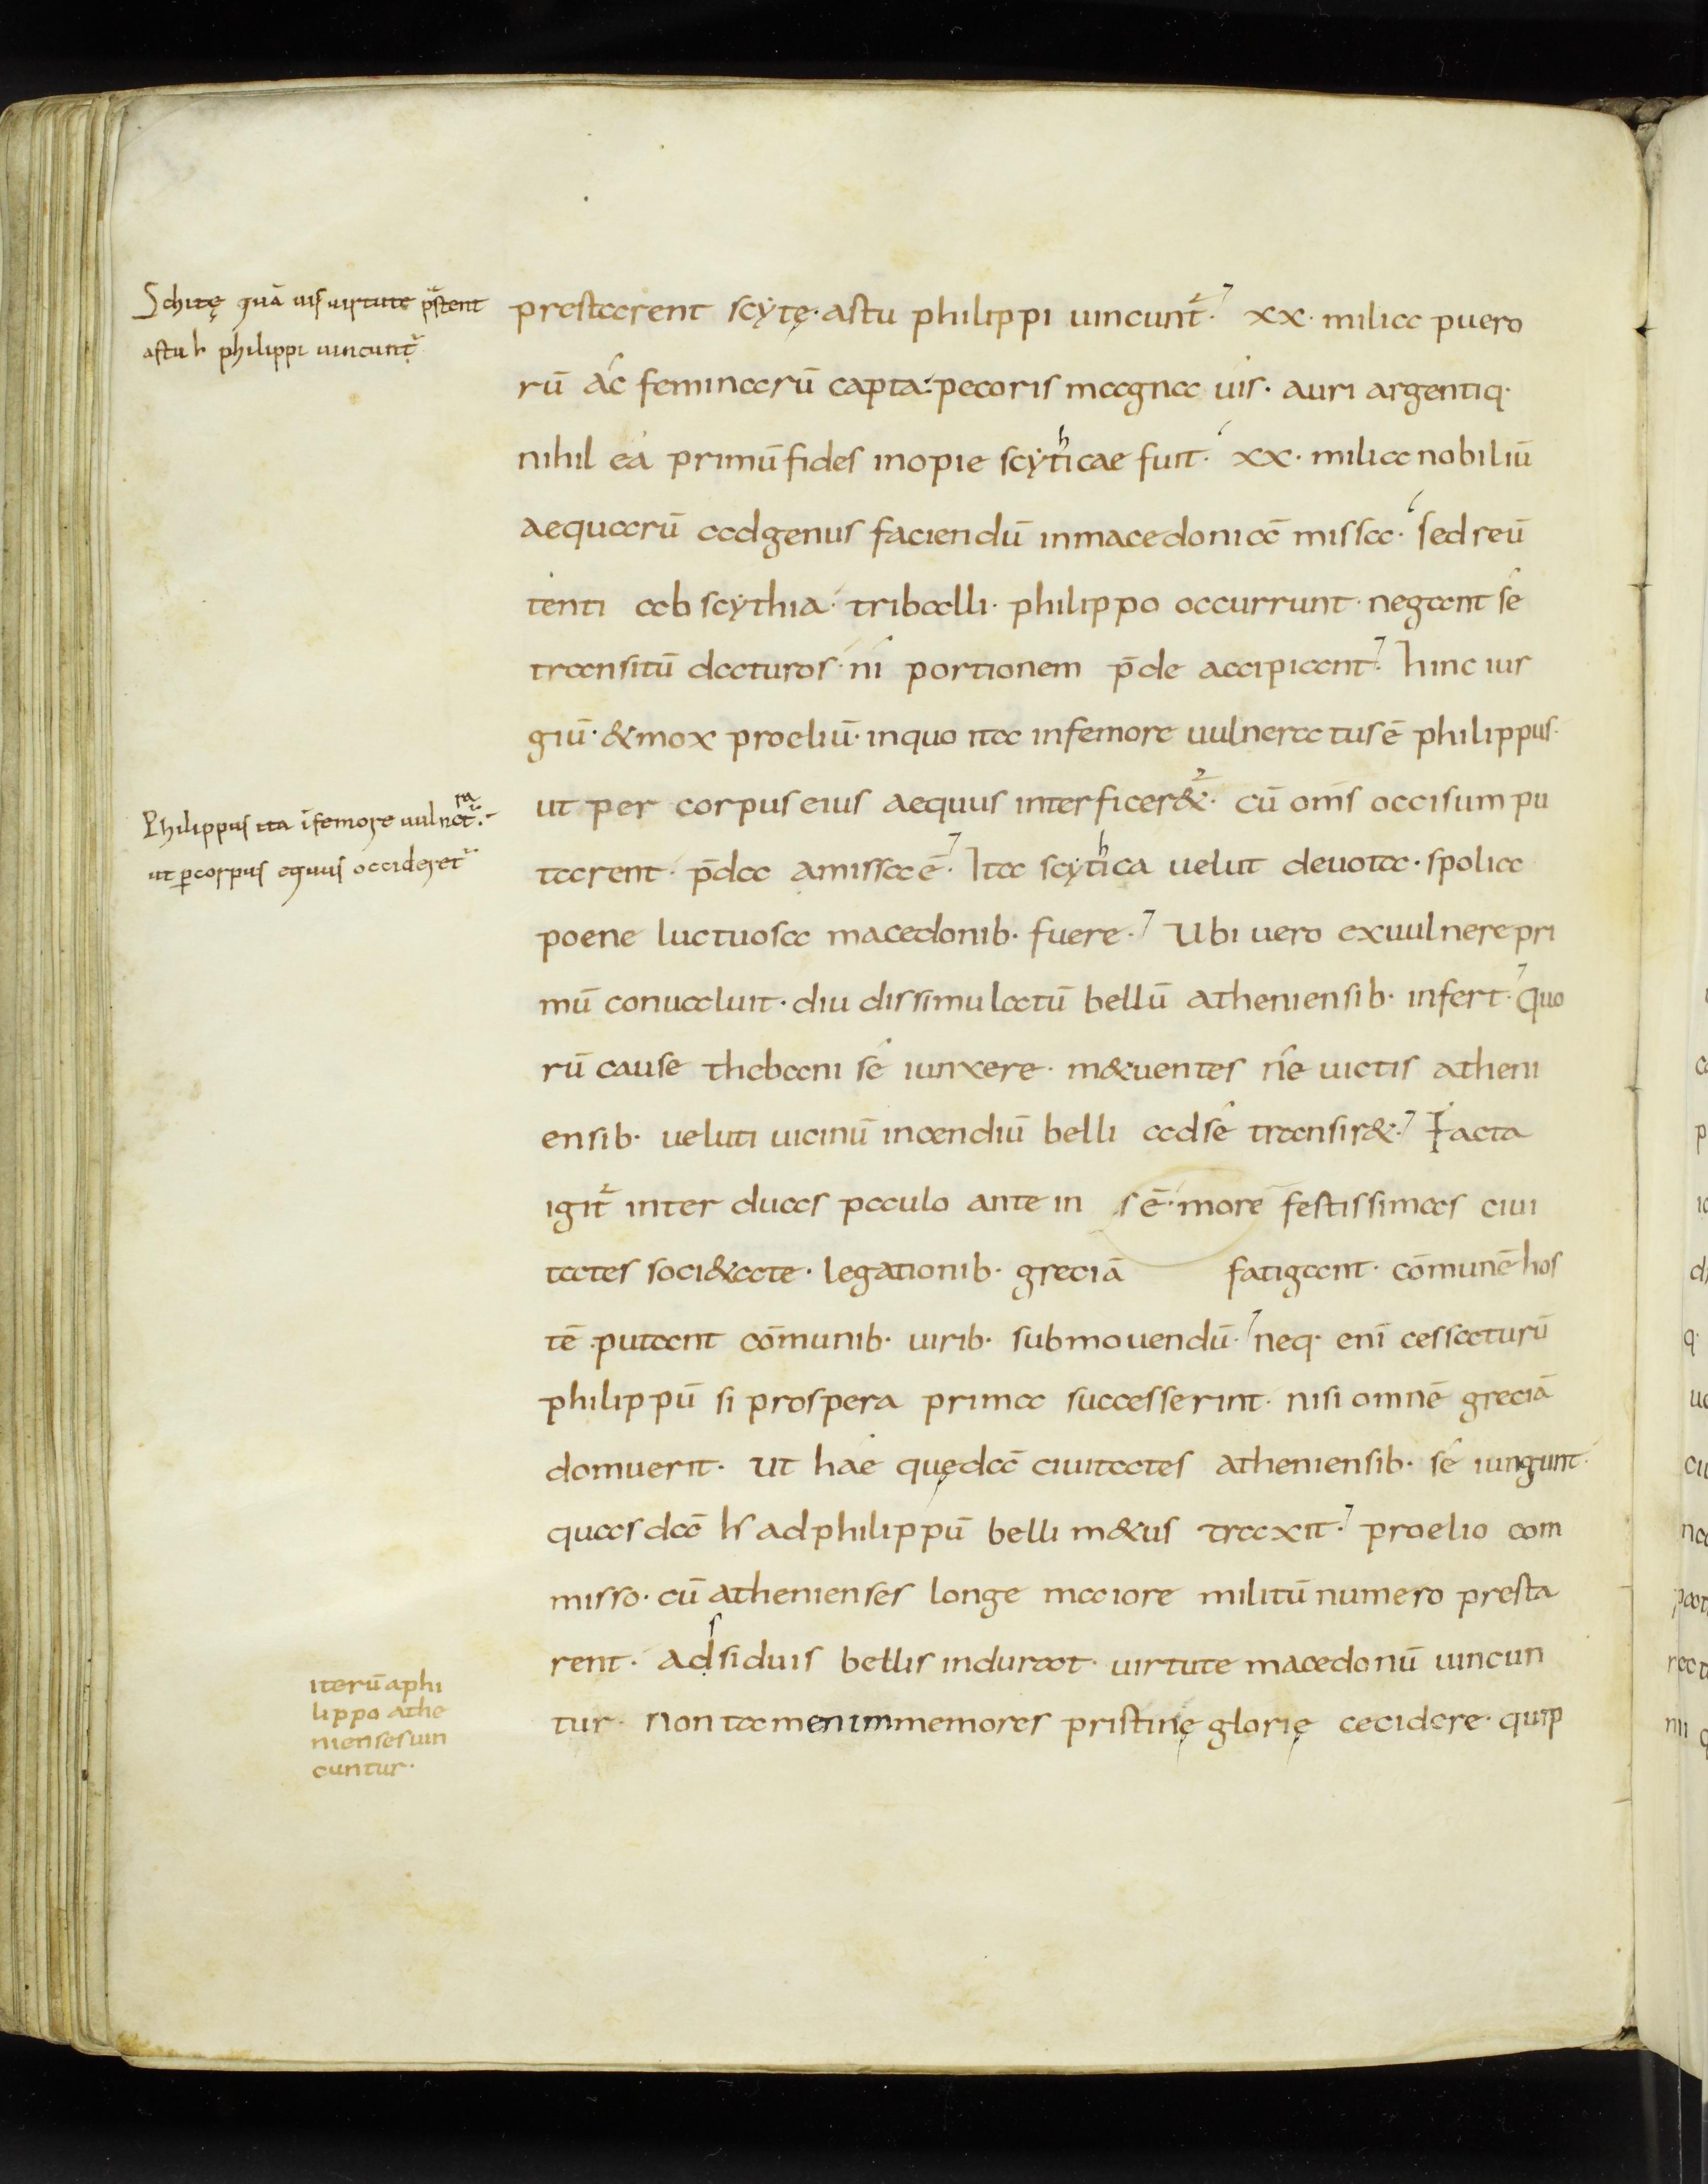 Schitę quā uis uirtute p̄stent
astu h philippi uincunt᷑
prestarent scÿtę· astu philippi uincunt᷑· xx· milia puero
rū ac feminarū capta: pecoris magna uis· auri argentiq·
nihil ea primū fides inopie scÿthicae fuit· xx· milia nobiliū
aequarū ad genus faciendū in macedoniā missa· sed reū
tenti ab scÿthia· triballi· philippo occurrunt· negant se
transitū daturos· ni portionem p̄de accipiant· hinc iur
giū· & mox proeliū· in quo ita in femore uulneratus ē philippus·
Philippus ita ī femore uulnerat᷑·
ut p corpus equus occideret᷑
ut per corpus eius aequus interficer&᷑· cū om̄s occisum pu
tarent· p̄da amissa ē· Ita scÿthica uelut deuota· spolia
poene luctuosa macedonib· fuere· Ubi uero ex uulnere pri
mū conualuit· diu dissimulatū bellū atheniensib· infert· quo
rū cause thebani se iunxere· m&uentes ne uictis atheni
ensib· ueluti uicinū incendiū belli ad se transir&· Facta
igit᷑ inter duas paulo ante in s ē· more festissimas ciui
tates soci&ate· legationib· greciā fatigant· cōmunē hos
tē putant cōmunib· uirib· submouendū· neq· enī cessaturū
philippū si prospera prima successerint· nisi omnē greciā
domuerit· ut hae quędā ciuitates atheniensib· se iungunt·
quasdā h ad philippū belli m&us traxit· proelio com
misso· cū athenienses longe maiore militū numero presta
rent· adsiduis bellis indurat· uirtute macedonū uincun
iterū a phi
lippo athe
nienses uin
cuntur·
tur· non tamen immemores pristinę glorię cecidere· quip